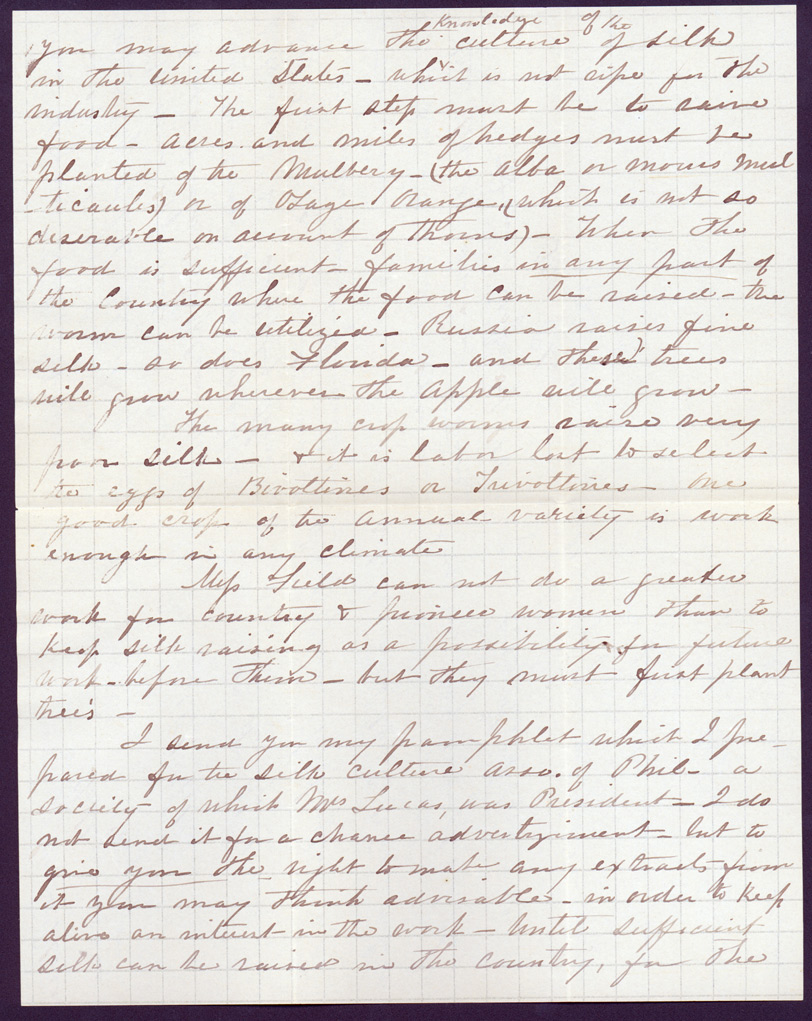 you may advance the knowledge of the culture of silk
in the United States – which is not ripe for the
industry – The first step must be to raise
food – acres and miles of hedges must be
planted of the Mulbery – (the Alba or morus mul
-ticaulis) or of Osage Orange, (which is not so
diserable on account of thorns) – When the
food is sufficient – families in any part of
the Country where the food can be raised – the
worm can be utilized – Russia raises fine
silk – so does Florida – and these trees
will grow wherever the Apple will grow –
The many crop worms raise very
poor silk – & it is labor lost to select
the eggs of Bivoltines or Trivoltines – One
good crop of the annual variety is work
enough in any climate
Miss Field can not do a greater
work for country & pioneer women than to
keep silk raising as a possibility for future
work – before them – but they must first plant
trees –
I send you my pamphlet which I pre-
pared for the silk culture asso. of Phil – a
society of which Mrs Lucas, was President – I do
not send it for a chance advertizement – but to
give you the right to make any extracts from
it you may think advisable – in order to keep
alive an interest in the work – Until sufficient
silk can be raised in the country, for the